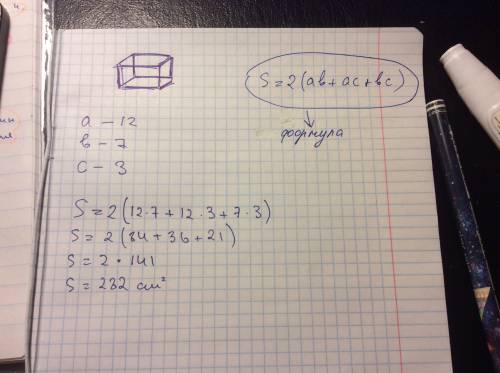 S = 2(ab + ac + bc)
формула
a – 12
b – 7
c – 3
S = 2(12·7 + 12·3 + 7·3)
S = 2(84 + 36 + 21)
S = 2·141
S = 282 см²